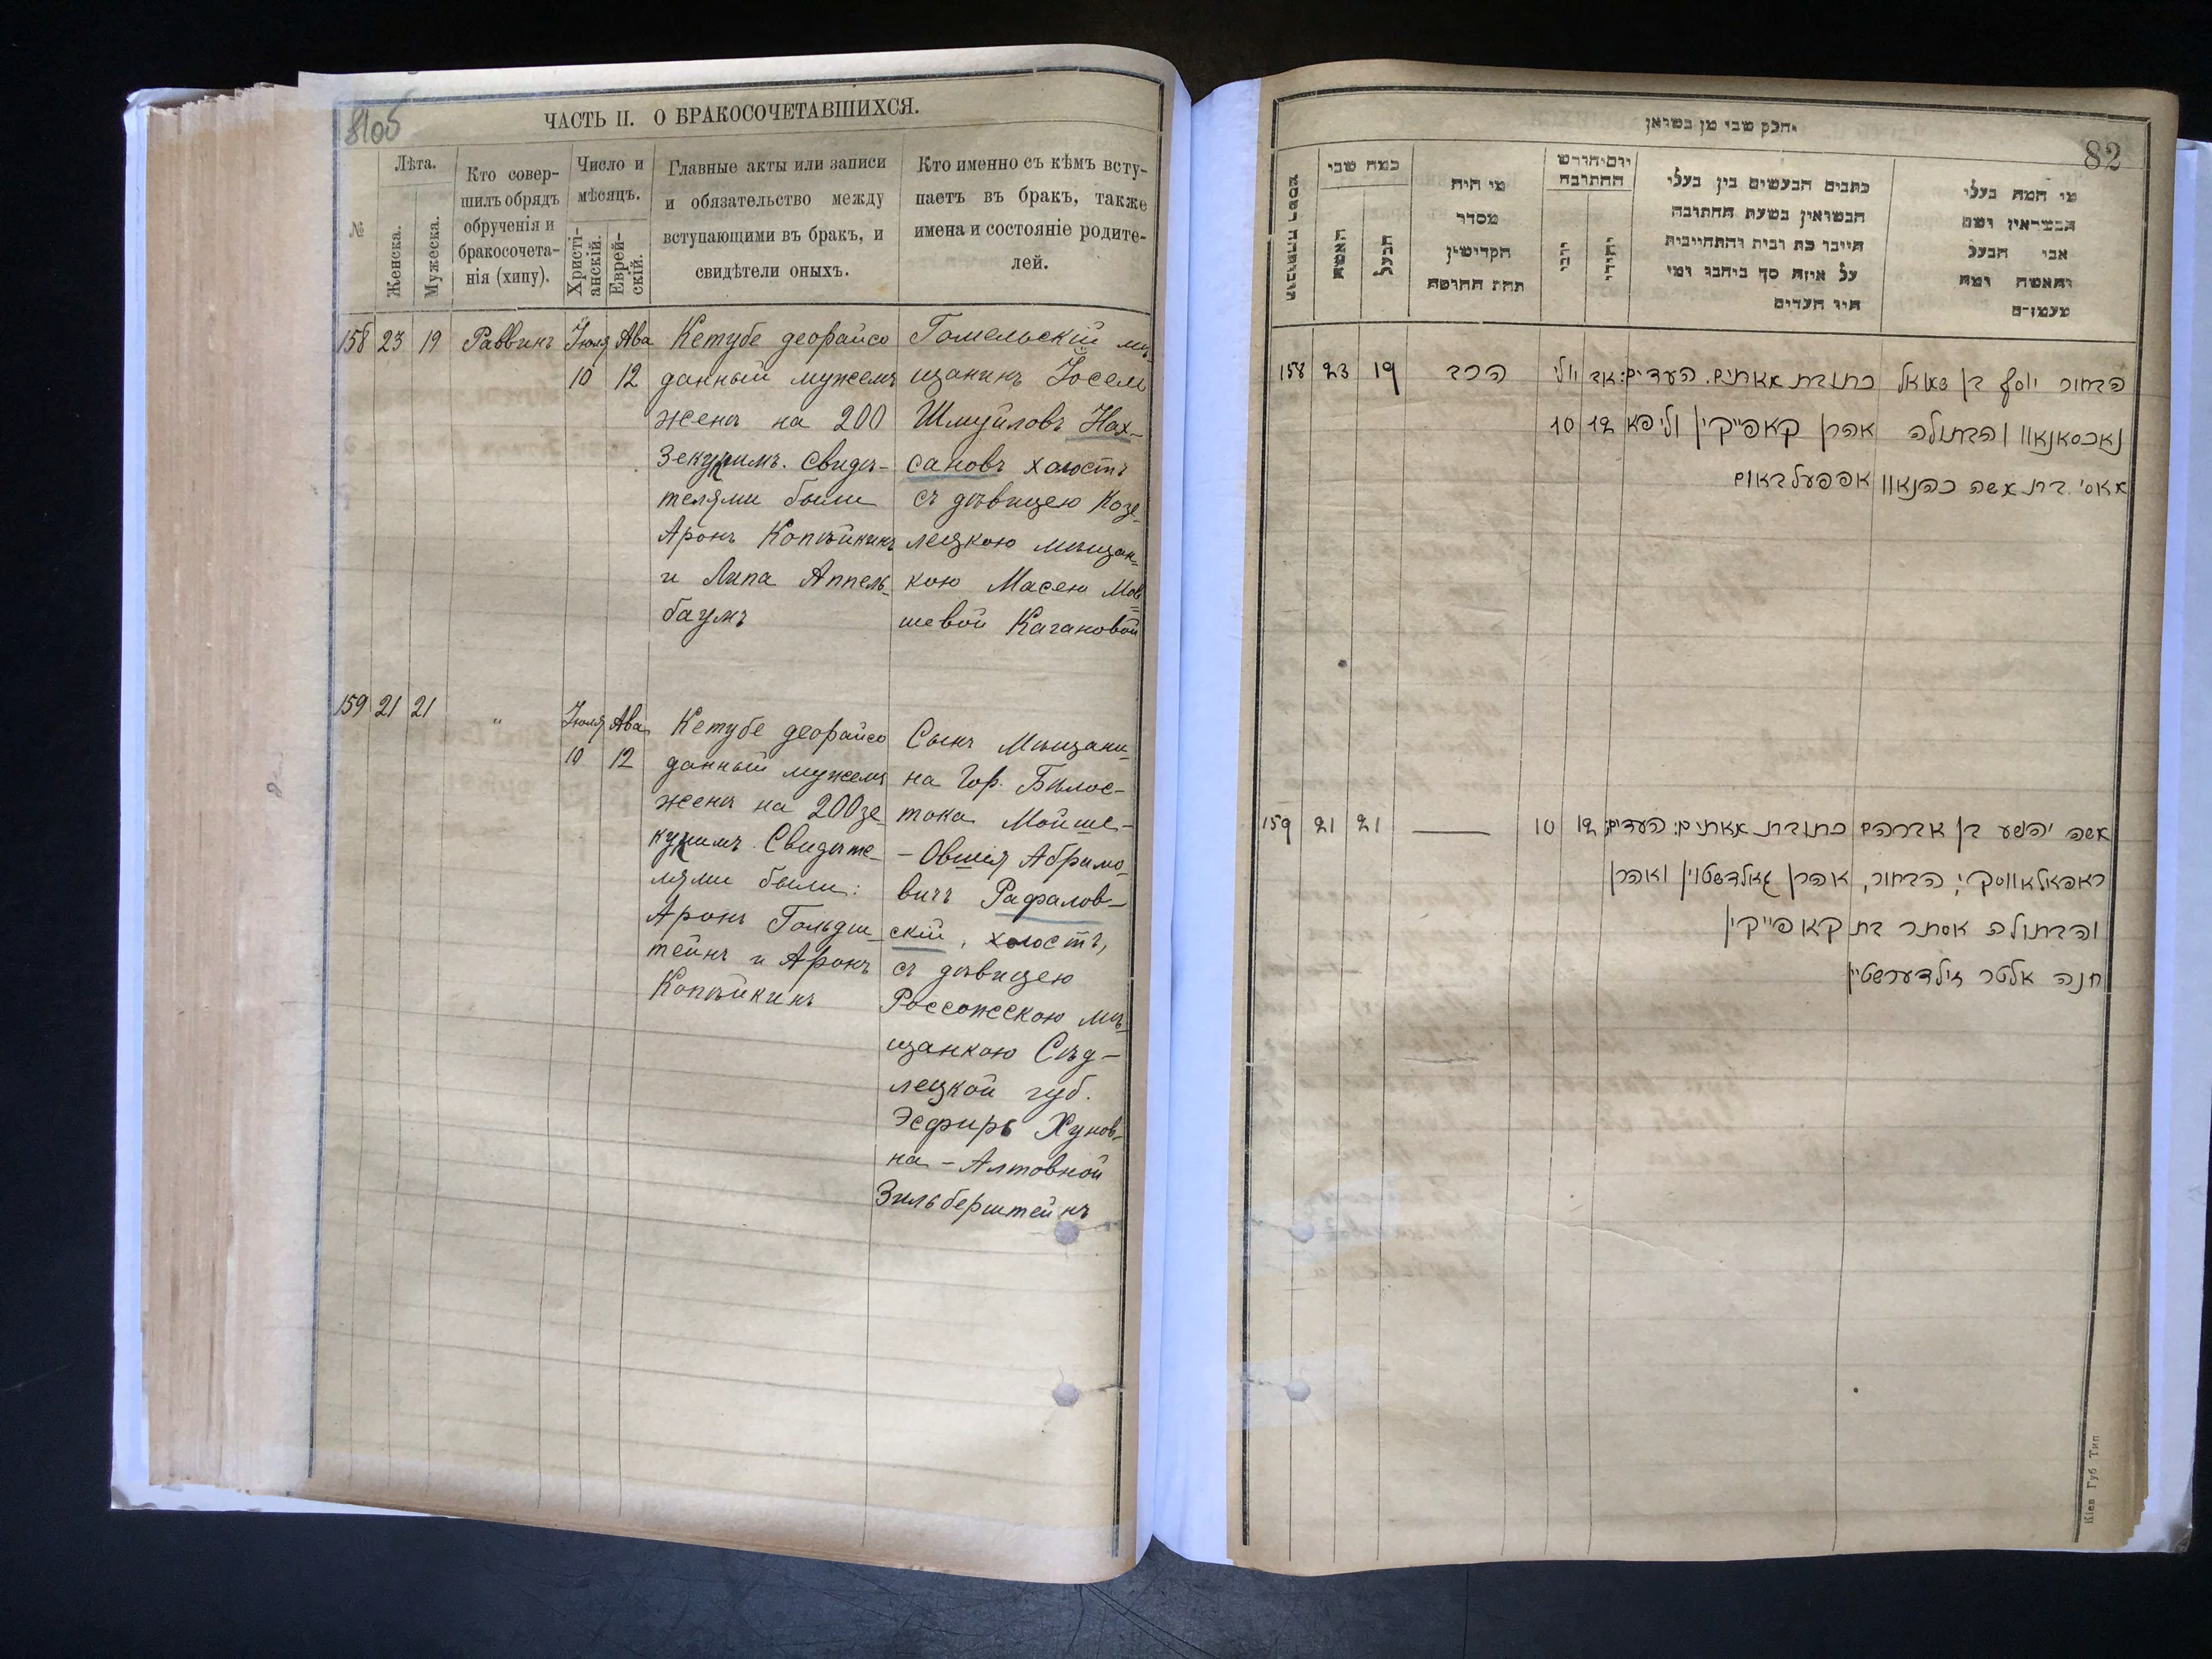 81об
ЧАСТЬ II. О БРАКОСОЧЕТАВШИХСЯ.
№
Лѣта.
Женска.
Мужеска.
Кто совер-
шилъ обрядъ
обрученія и
бракосочета-
нія (хипу).
Число и
мѣсяцъ.
Христі-
анскій.
Еврей-
скій.
Главные акты или записи
и обязательство между
вступающими въ бракъ, и
свидѣтели оныхъ.
Кто именно съ кѣмъ всту-
паетъ въ бракъ, также
имена и состояніе родите-
лей.
158 23 19 Раввинъ Іюля Ава
10 12
Кетубе деорайсо
данный мужемъ
женѣ на 200
Зекукимъ. Свидѣ-
телями были
Аронъ Копѣйкинъ
и Липа Аппель-
баумъ
Гомельскій мѣ-
щанинъ Іосель
Шмуйловъ Нах-
сановъ холостъ
съ дѣвицею Козе-
лецкою мѣщан-
кою Масею Мов-
шевой Кагановой
159 21 21 " Іюля Ава
10 12
Кетубе деорайсо
данный мужемъ
женѣ на 200 зе-
кукимъ. Свидѣте-
лями были:
Аронъ Гольдш-
тейнъ и Аронъ
Копѣйкинъ
Сынъ Мѣщани-
на Гор. Бѣлос-
тока Мойше-
-Овшія Абрамо-
вичъ Рафалов-
скій, холостъ,
съ дѣвицею
Россожскою мѣ-
щанкою Сѣд-
лецкой губ.
Эсфирь Хунов-
на-Алтовной
Зильберштейнъ
82
מי המה בעלי
ושם
אבי הבעל
והאשה ומה
כתבים הנעשים בין בעלי
הנשואין בשעת החתונה
על איזה סך ומי
היו העדים
יום וחודש
החתונה
יהודי
מי היה
מסדר
הקדושין
תחת החופה
כמה שני
הבעל
האשה
158 23 19 הרב יולי אב
10 12
הבחור יוסף בן שמואל
נאכסאנאוו והבתולה
מאסי בת משה כהנאוו
כתובת מאתים. העדים:
אהרן קאפייקין וליפא
אפפעלבאום
159 21 21 10 12
משה יהושע בן אברהם
ראפאלאווסקי, הבחור,
והבתולה אסתר בת
חנה אלטר זילבערשטיין
כתובת מאתים: העדים:
אהרן גאלדשטיין ואהרן
קאפייקין
Кіев Губ Тип